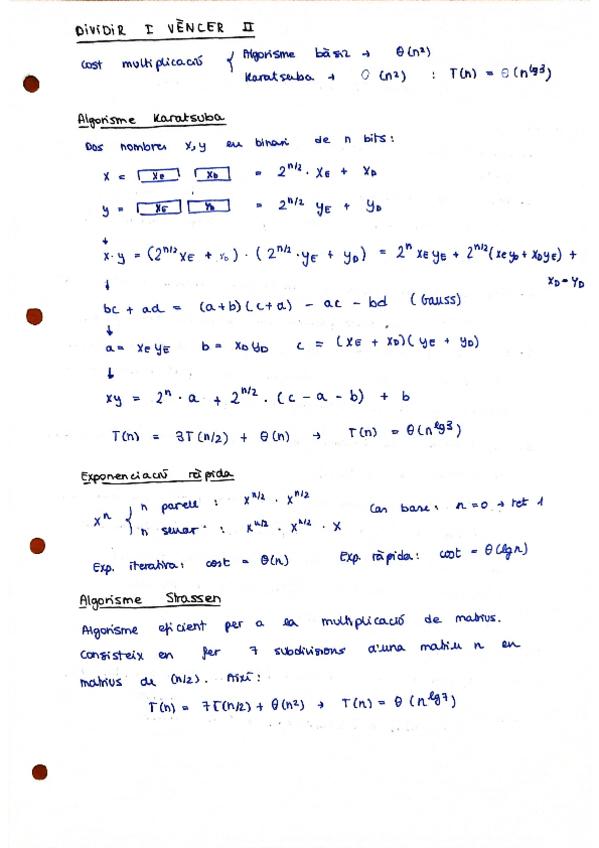 DIVIDIR I VÈNCER II
cost multiplicació { Algorisme bàsic → Θ(n²)
Karatsuba → O(n²) : T(n) = Θ(n^lg3)
Algorisme Karatsuba
Dos nombres x,y en binari de n bits:
x = [xE] [xD] = 2^n/2 · xE + xD
y = [xE] [yD] = 2^n/2 yE + yD
↓
x·y = (2^n/2 xE + xD) · (2^n/2 · yE + yD) = 2^n xE yE + 2^n/2 (xE yD + xD yE) +
xD – yD
↓
bc + ad = (a+b)(c+d) – ac – bd (Gauss)
↓
a = xE yE b = xD yD c = (xE + xD)(yE + yD)
↓
xy = 2^n · a + 2^n/2 · (c – a – b) + b
T(n) = 3T(n/2) + Θ(n) → T(n) = Θ(n^lg3)
Exponenciació ràpida
x^n { n parell : x^n/2 · x^n/2
n senar : x^n/2 · x^n/2 · x
Cas base: n=0 → ret 1
Exp. iterativa: cost = Θ(n) Exp ràpida: cost = Θ(lgn)
Algorisme Strassen
Algorisme eficient per a la multiplicació de matrius.
Consisteix en fer 7 subdivisions d'una matriu n en
matrius de (n/2). Així:
T(n) = 7T(n/2) + Θ(n²) → T(n) = Θ(n^lg7)